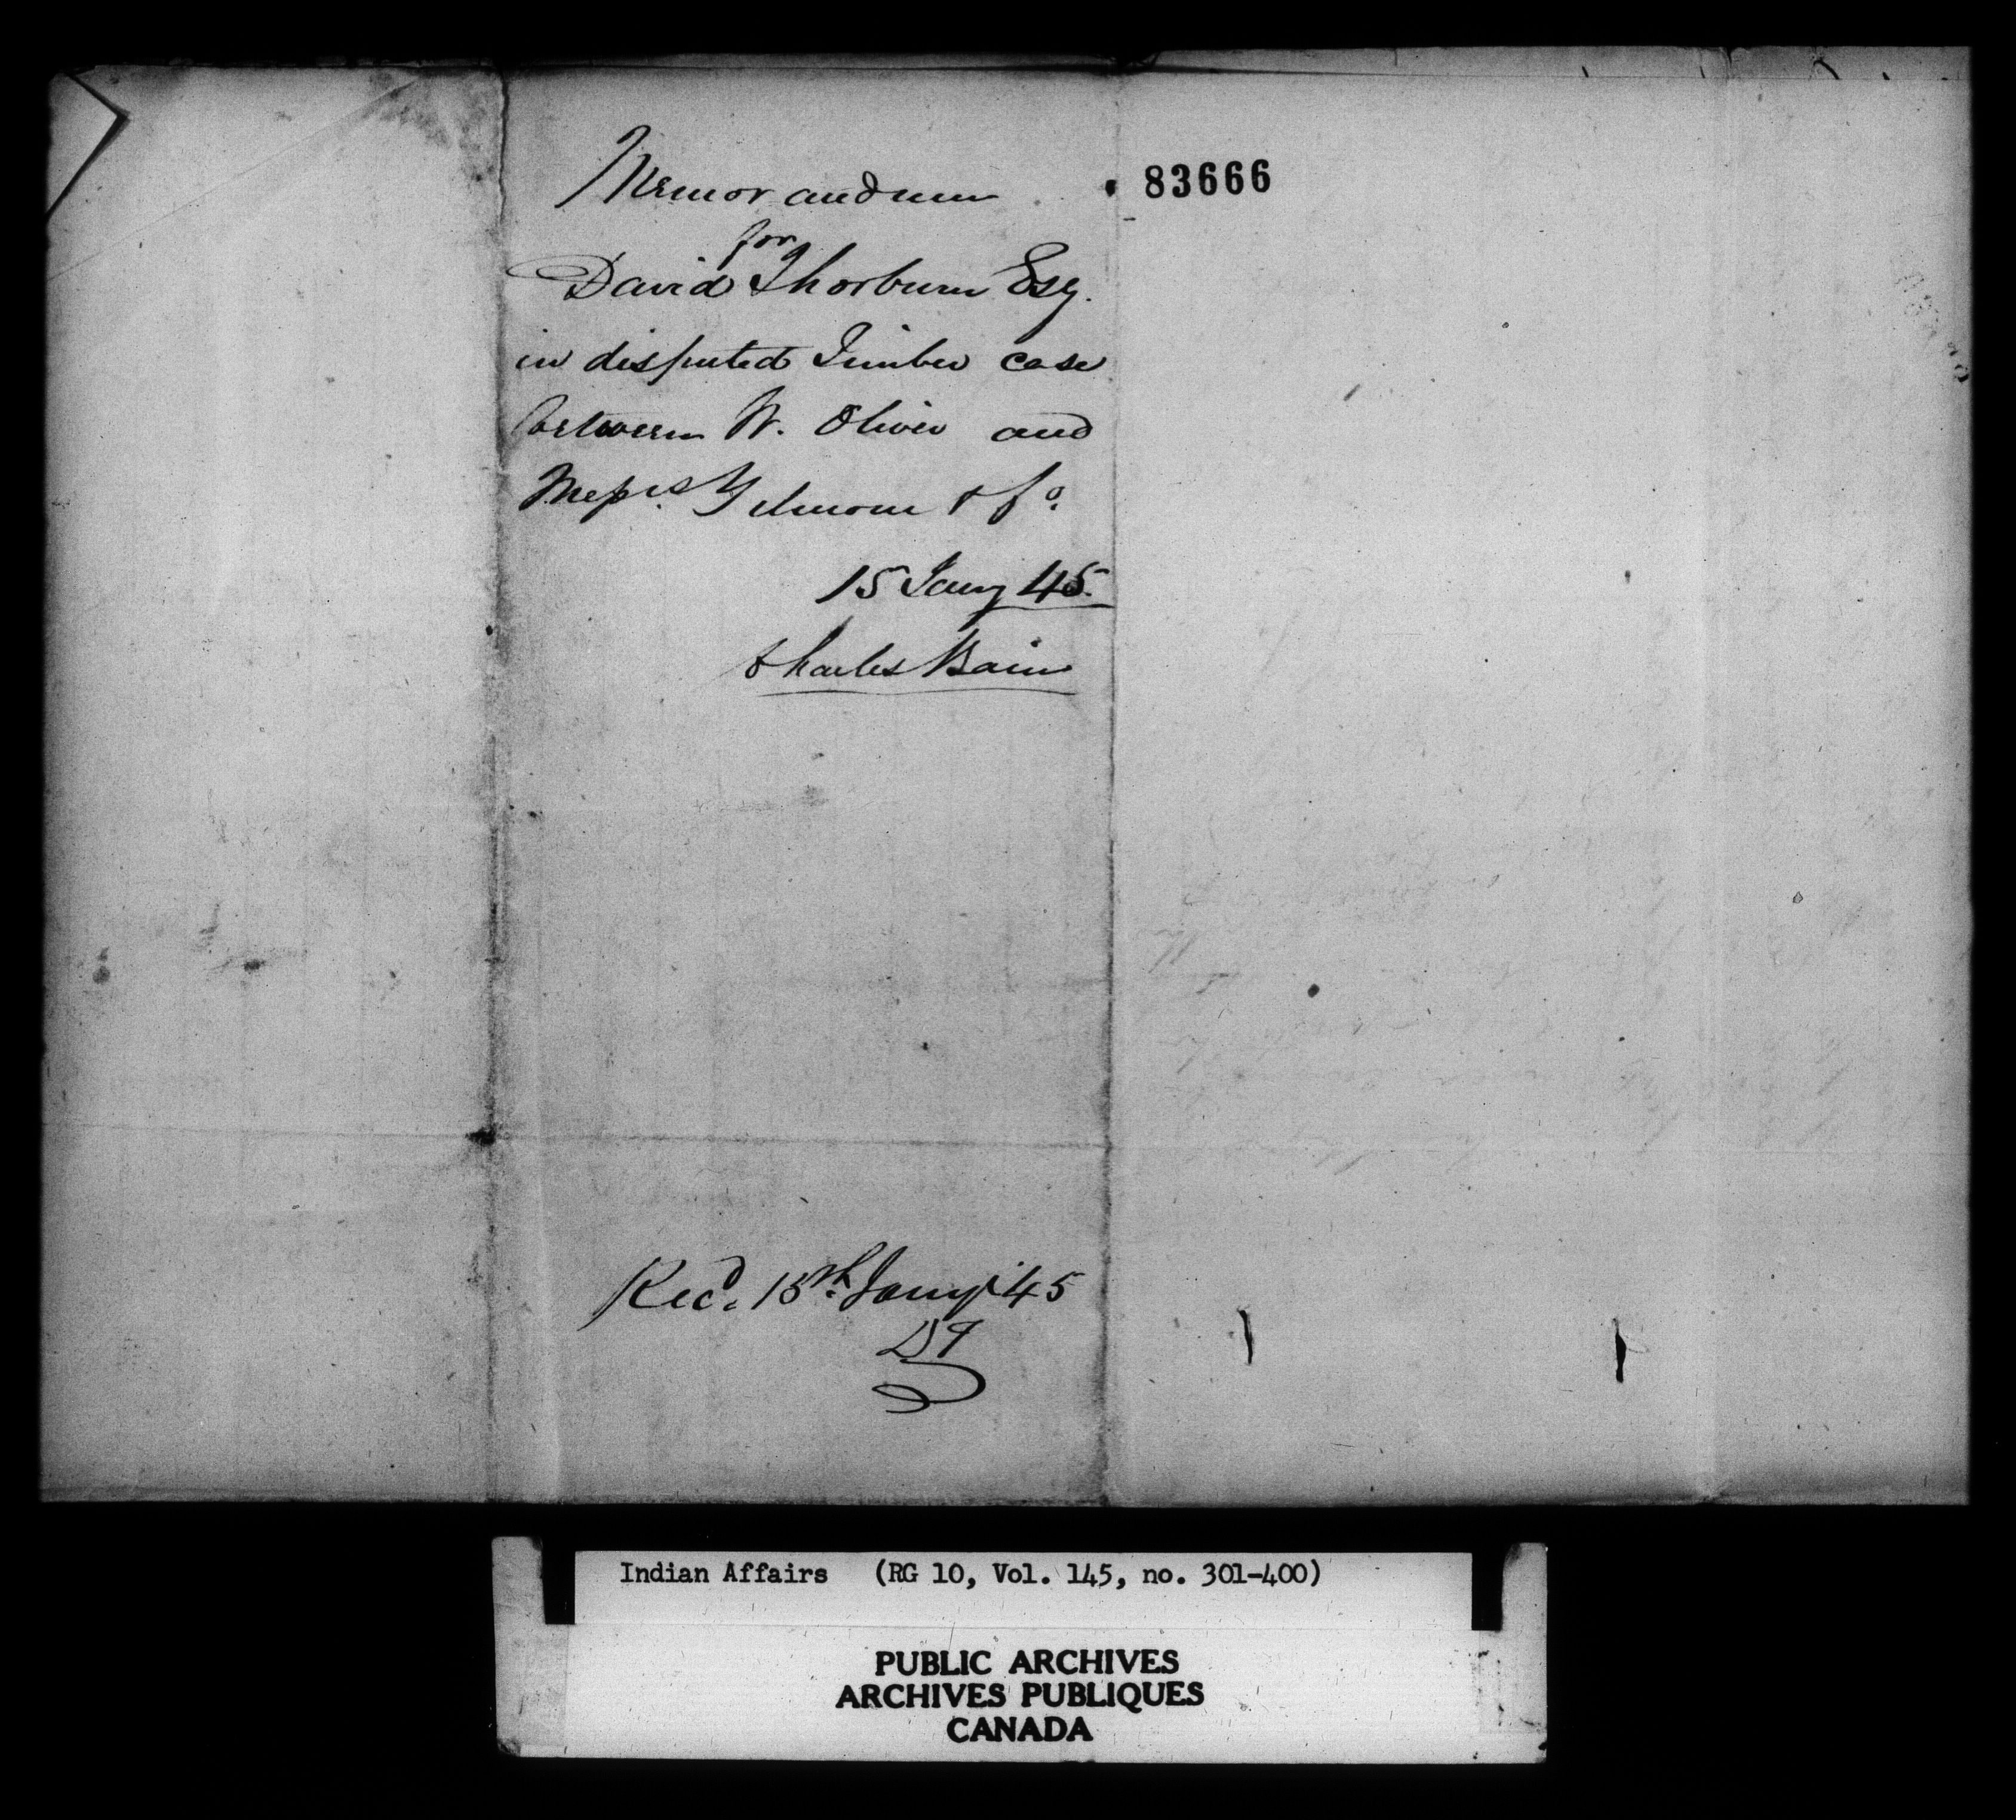 Memorandum
for
David Thorburn Esq.
in disputed Timber case
between W. Oliver and
Messrs. Gilmour & Co.
15 Jany 45.
Charles Bain
83666
Recd. 15th. Jany 45
DT
Indian Affairs (RG 10, Vol. 145, no. 301-400)
PUBLIC ARCHIVES
ARCHIVES PUBLIQUES
CANADA